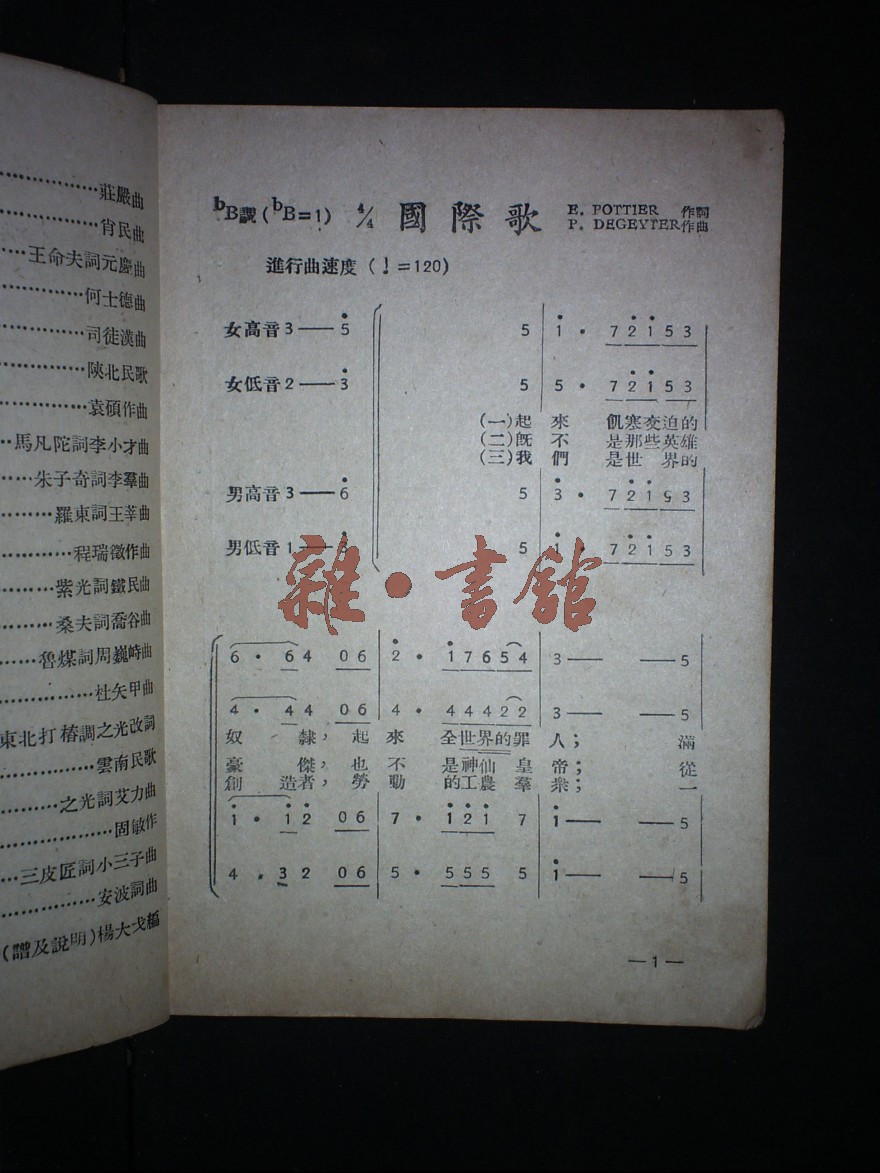 莊嚴曲
肖民曲
王命夫詞元慶曲
何士德曲
司徒漢曲
陝北民歌
袁碩作曲
馬凡陀詞李小才曲
朱子奇詞李羣曲
羅東詞王莘曲
程瑞徵作曲
紫光詞鐵民曲
桑夫詞喬谷曲
魯煤詞周巍峙曲
杜矢甲曲
東北打樁調之光改詞
雲南民歌
之光詞艾力曲
固敏作
三皮匠詞小三子曲
安波詞曲
(譜及說明)楊大戈編
bB調(bB=1) 4/4 國際歌 E. POTTIER 作詞
P. DEGEYTER作曲
進行曲速度 (♩=120)
女高音 3——5 5 1 · 7 2 1 5 3
女低音 2——3 5 5 · 7 2 1 5 3
(一)起來 飢寒交迫的
(二)既不 是那些英雄
(三)我們 是世界的
男高音 3——6 5 3 · 7 2 1 5 3
男低音 1—— 5 1 · 7 2 1 5 3
雜·書館
6 · 6 4 0 6 2 · 1 7 6 5 4 3—— ——5
4 · 4 4 0 6 4 · 4 4 4 2 2 3—— ——5
奴隸，起來 全世界的罪人； 滿
豪傑，也不 是神仙皇帝； 從
創造者，勞動 的工農羣衆； 一
1 · 1 2 0 6 7 · 1 2 1 7 1—— ——5
4 . 3 2 0 6 5 · 5 5 5 5 1—— ——5
—1—